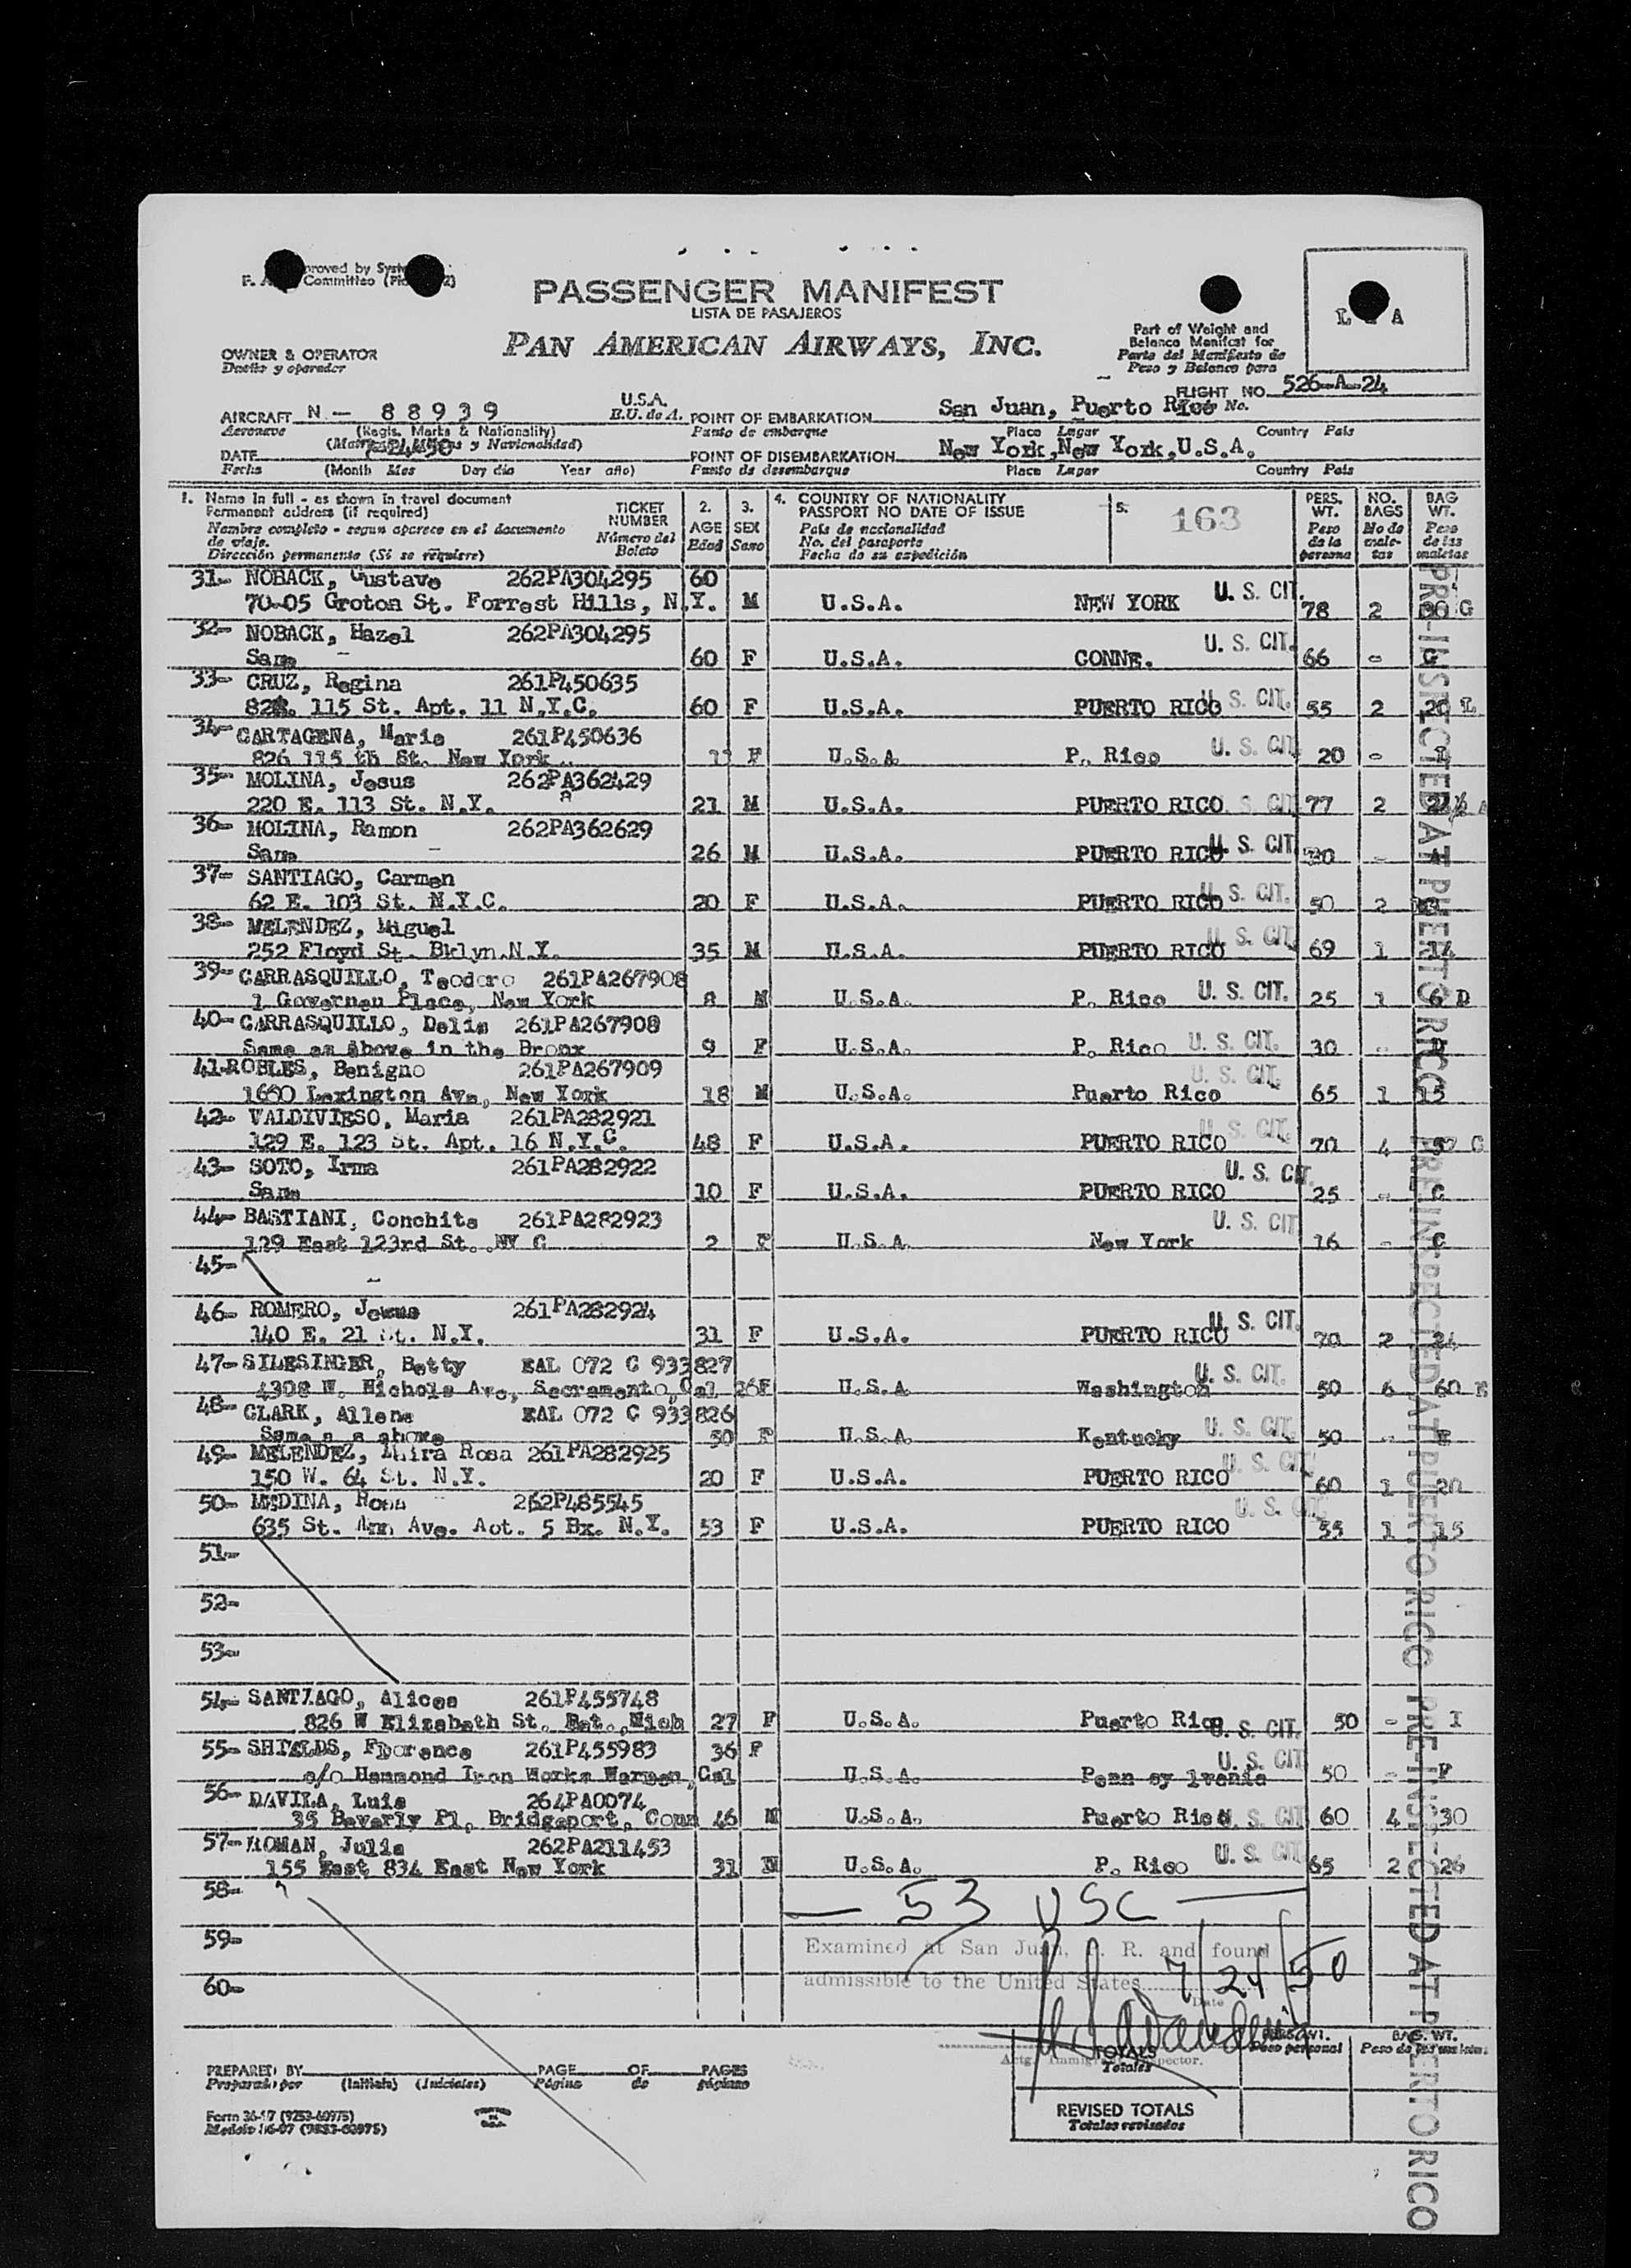 PASSENGER MANIFEST
LISTA DE PASAJEROS
PAN AMERICAN AIRWAYS, INC.
OWNER & OPERATOR
Dueño y operador
Part of Weight and
Balance Manifest for
Parte del Manifiesto de
Peso y Balance para
L A
FLIGHT NO. 526-A-24
AIRCRAFT N - 88939
U.S.A.
E.U. de A.
POINT OF EMBARKATION San Juan, Puerto Rico
Aeronave
(Regis. Marks & Nationality)
Punto de embarque
Place Lugar
Country Pais
DATE
POINT OF DISEMBARKATION New York,New York,U.S.A.
Fecha
(Month Mes Day dia Year año)
Punto de desembarque
Place Lugar
Country Pais
1. Name in full - as shown in travel document
Permanent address (if required)
Nombre completo - segun aparece en el documento
de viaje.
Dirección permanente (Si se requiere)
TICKET
NUMBER
Número del
Boleto
2.
AGE
Edad
3.
SEX
Sexo
4. COUNTRY OF NATIONALITY
PASSPORT NO DATE OF ISSUE
Pais de nacionalidad
No. del pasaporte
Fecha de su expedición
5. 163
PERS.
WT.
Peso
de la
persona
NO.
BAGS
No de
male-
tas
BAG
WT.
Peso
de las
maletas
31- NOBACK, Gustave 262PA304295 60
70-05 Groton St. Forrest Hills, N.Y. M U.S.A. NEW YORK U. S. CIT. 78 2 G
32- NOBACK, Hazel 262PA304295
Same 60 F U.S.A. CONNE. U. S. CIT. 66 - G
33- CRUZ, Regina 261P450635
115 St. Apt. 11 N.Y.C. 60 F U.S.A. PUERTO RICO U. S. CIT. 55 2 20 L
34- CARTAGENA, Maria 261P450636
826 115 th St. New York F U.S.A P. Rico U. S. CIT 20 -
35- MOLINA, Jesus 262PA362429
220 E. 113 St. N.Y. 21 M U.S.A. PUERTO RICO U. S. CIT 77 2
36- MOLINA, Ramon 262PA362629
Same 26 M U.S.A. PUERTO RICO U. S. CIT -
37- SANTIAGO, Carmen
62 E. 103 St. N.Y.C. 20 F U.S.A. PUERTO RICO U. S. CIT. 50 2
38- MELENDEZ, Miguel
252 Floyd St. Bklyn.N.Y. 35 M U.S.A. PUERTO RICO U. S. CIT. 69 1 14
39- CARRASQUILLO, Teodoro 261PA267908
1 Governeu Place, New York 8 M U.S.A. P. Rico U. S. CIT. 25 1 6 D
40- CARRASQUILLO, Delia 261PA267908
Same as above in the Bronx 9 F U.S.A. P. Rico U. S. CIT. 30 -
41-ROBLES, Benigno 261PA267909
1650 Lexington Ave, New York 18 M U.S.A. Puerto Rico U. S. CIT. 65 1 15
42- VALDIVIESO, Maria 261PA282921
129 E. 123 St. Apt. 16 N.Y.C. 48 F U.S.A. PUERTO RICO U. S. CIT. 70 4 C
43- SOTO, Irma 261PA282922
Same 10 F U.S.A. PUERTO RICO U. S. CIT. 25 - C
44- BASTIANI, Conchita 261PA282923
129 East 123rd St. NY C 2 F U.S.A New York U. S. CIT 16 - C
45-
46- ROMERO, Jesus 261PA282924
140 E. 21 St. N.Y. 31 F U.S.A. PUERTO RICO U. S. CIT. 70 2 24
47-SILESINGER, Betty EAL 072 C 933827
4308 W. Nichols Ave, Sacramento,Cal 26F U.S.A Washington U. S. CIT. 50 6 60 E
48- CLARK, Allene EAL 072 C 933826
Same a s above 50 F U.S.A Kentucky U. S. CIT. 50 - E
49- MELENDEZ, Rosa 261PA282925
150 W. 64 St. N.Y. 20 F U.S.A. PUERTO RICO U. S. CIT 60 1 20
50- MEDINA, Rosa 262P485545
635 St. Ann Ave. Aot. 5 Bx. N.Y. 53 F U.S.A. PUERTO RICO U. S. CIT. 55 1 15
51-
52-
53-
54- SANTIAGO, Alicea 261P455748
826 W Elizabeth St. Det.,Mich 27 F U.S.A. Puerto Rico U. S. CIT. 50 - I
55- SHIELDS, Florence 261P455983 36 F
c/o Hammond Iron Works Warren,Cal U.S.A. Penn sy lvania U. S. CIT 50 - F
56- DAVILA, Luis 264PA0074
35 Beverly Pl, Bridgeport, Conn 46 M U.S.A. Puerto Rico U. S. CIT 60 4 30
57- ROMAN, Julia 262PA211453
155 East 834 East New York 31 M U.S.A. P. Rico U. S. CIT 65 2 26
58-
— 53 USC —
59-
Examined at San Juan, P. R. and found
admissible to the United States 7/24/50
Date
60-
Actg. Immigrant Inspector.
TOTALS
Totales
PERS. WT.
Peso personal
BAG. WT.
REVISED TOTALS
Totales revisados
PREPARED BY
Preparado por
(Initials) (Iniciales)
PAGE OF PAGES
Página de páginas
Form 36-17 (9253-60975)
PRE-INSPECTED AT PUERTO RICO
PRE-INSPECTED AT PUERTO RICO
PRE-INSPECTED AT PUERTO RICO